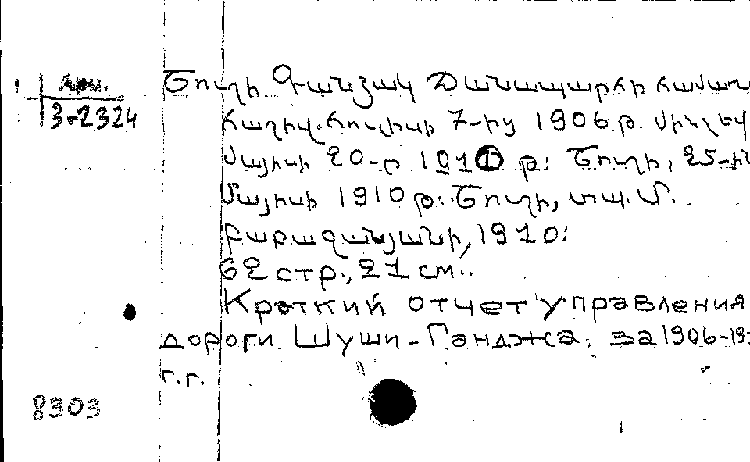 Арм.
3-2324
Շուշի Գանձակ Ճանապարհի համառ
հաշիվ. հուլիսի 7-ից 1906 թ. մինչև
մայիսի 20-ը 1910 թ: Շուշի, 25-ին
Մայիսի 1910 թ. Շուշի, տպ. Մ.
1910:
62 стр., 21 см.
Краткий отчет управления
дороги Шуши-Ганджа, за 1906-19
г.г.
8303